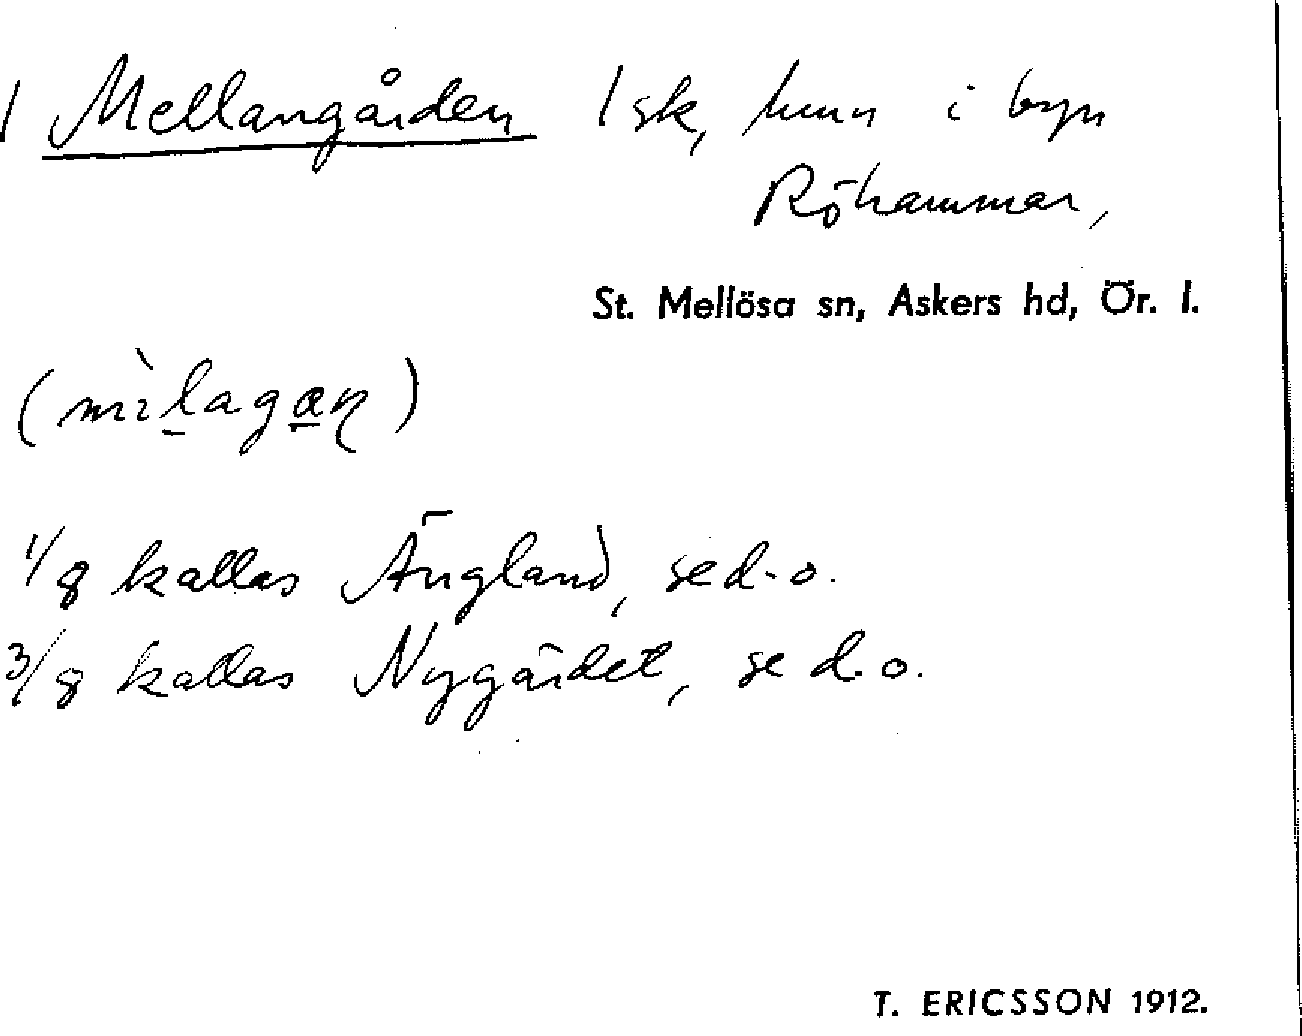 1 Mellangården 1 sk, hmn i byn
Röhammar,
St. Mellösa sn, Askers hd, Ör. l.
1/8 kallas Ängland, se d.o.
3/8 kallas Nygärdet, se d.o.
T. ERICSSON 1912.